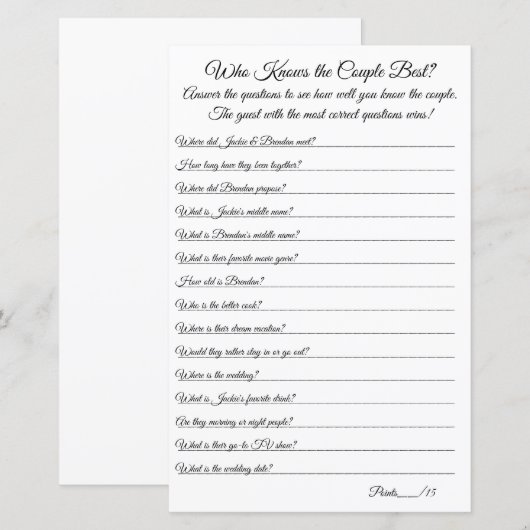 Who Knows the Couple Best?
Answer the questions to see how well you know the couple.
The guest with the most correct questions wins!
Where did Jackie & Brendan meet?
How long have they been together?
Where did Brendan propose?
What is Jackie's middle name?
What is Brendan's middle name?
What is their favorite movie genre?
How old is Brendan?
Who is the better cook?
Where is their dream vacation?
Would they rather stay in or go out?
Where is the wedding?
What is Jackie's favorite drink?
Are they morning or night people?
What is their go-to TV show?
What is the wedding date?
Points___/15